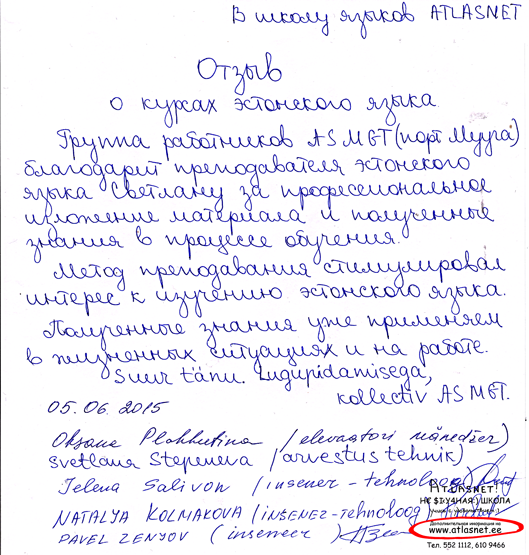 В школу языков ATLASNET
Отзыв
о курсах эстонского языка
Группа работников AS MGT (порт Мууга)
благодарит преподавателя эстонского
языка Светлану за профессиональное
изложение материала и полученные
знания в процессе обучения.
Метод преподавания стимулировал
интерес к изучению эстонского языка.
Полученные знания уже применяем
в жизненных ситуациях и на работе.
Suur tänu. Lugupidamisega,
kollectiv AS MGT.
05.06.2015
Oksana Plokhutina /elevaatori mänedžer)
Svetlana Stepeneva /arvestus tehnik)
Jelena Salivon /insener - tehnoloog)
NATALYA KOLMAKOVA (INSENER-tehnoloog)
PAVEL ZENYOV (insener)
ATLASNET!
НЕ СКУЧНАЯ ШКОЛА
Дополнительная информация на
www.atlasnet.ee
Тел. 552 1112, 610 9466